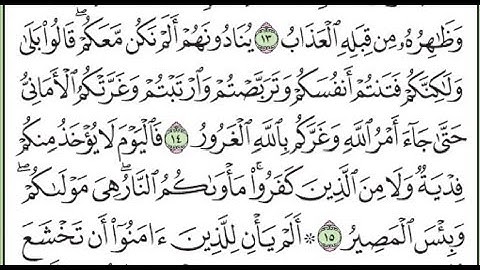 وَظَٰهِرُهُۥ مِن قِبَلِهِ ٱلْعَذَابُ ١٣ يُنَادُونَهُمْ أَلَمْ نَكُن مَّعَكُمْ ۖ قَالُوا۟ بَلَىٰ
وَلَٰكِنَّكُمْ فَتَنتُمْ أَنفُسَكُمْ وَتَرَبَّصْتُمْ وَٱرْتَبْتُمْ وَغَرَّتْكُمُ ٱلْأَمَانِىُّ
حَتَّىٰ جَآءَ أَمْرُ ٱللَّهِ وَغَرَّكُم بِٱللَّهِ ٱلْغَرُورُ ١٤ فَٱلْيَوْمَ لَا يُؤْخَذُ مِنكُمْ
فِدْيَةٌ وَلَا مِنَ ٱلَّذِينَ كَفَرُوا۟ ۚ مَأْوَىٰكُمُ ٱلنَّارُ ۖ هِىَ مَوْلَىٰكُمْ ۖ
وَبِئْسَ ٱلْمَصِيرُ ١٥ ۞ أَلَمْ يَأْنِ لِلَّذِينَ ءَامَنُوٓا۟ أَن تَخْشَعَ